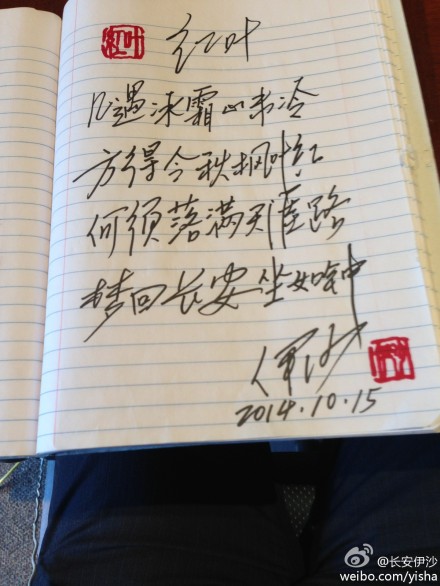 红叶 红叶
几遇冰霜心未冷
方得今秋枫叶红
何须落满天涯路
梦回长安坐如钟
伊沙 伊沙
2014.10.15
@长安伊沙
weibo.com/yisha